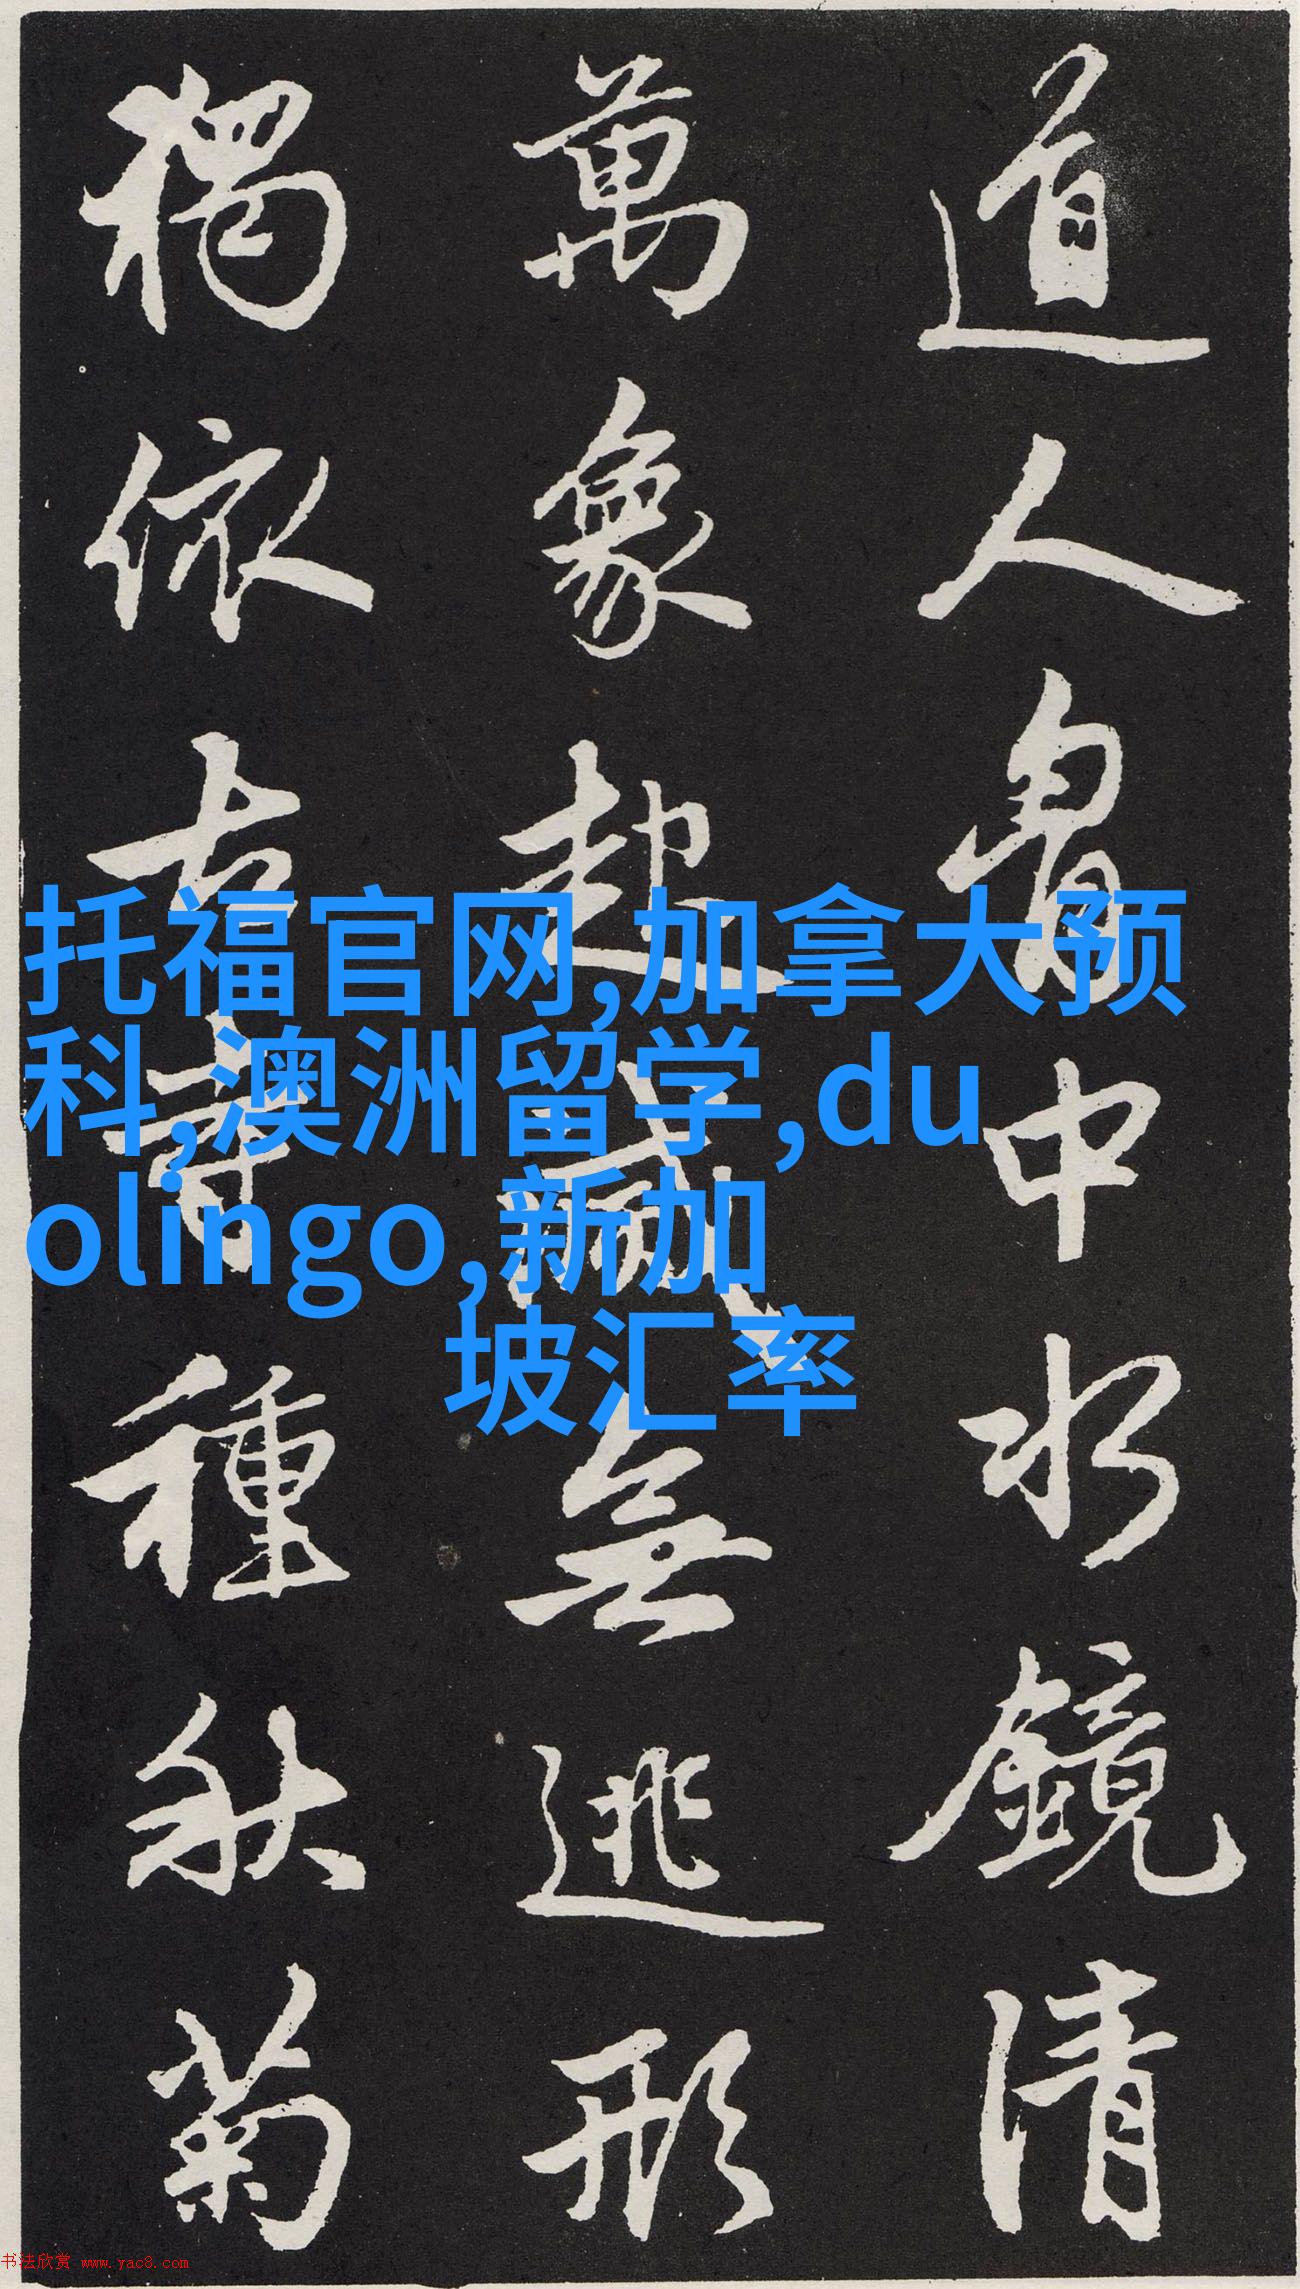 道人胷中水鏡清
萬象起滅無逃形
獨依古寺種秋菊
托福官网,加拿大预
科,澳洲留学,du
olingo,新加
坡汇率
书法欣赏 www.yac8.com